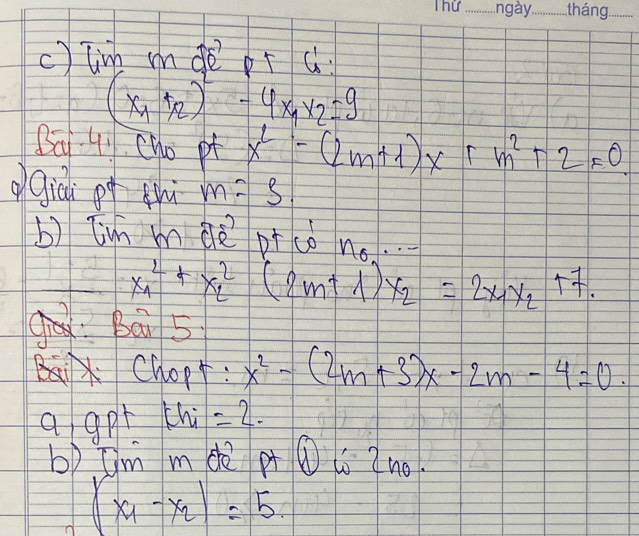 Thứ ......... ngày .......... tháng .......
c) Tìm m để pt có:
(x₁ + x₂)² - 4x₁x₂ = 9
Bài 4: Cho pt x² - (2m+1)x + m² + 2 = 0.
a) Giải pt khi m = 3.
b) Tìm m để pt có no ...
x₁² + x₂² (2m+1)x₂ = 2x₁x₂ + 7.
Giải: Bài 5:
Bài Cho pt: x² - (2m+3)x - 2m - 4 = 0.
a, gpt khi = 2.
b) Tìm m để pt ① có 2 no.
|x₁ - x₂| = 5.